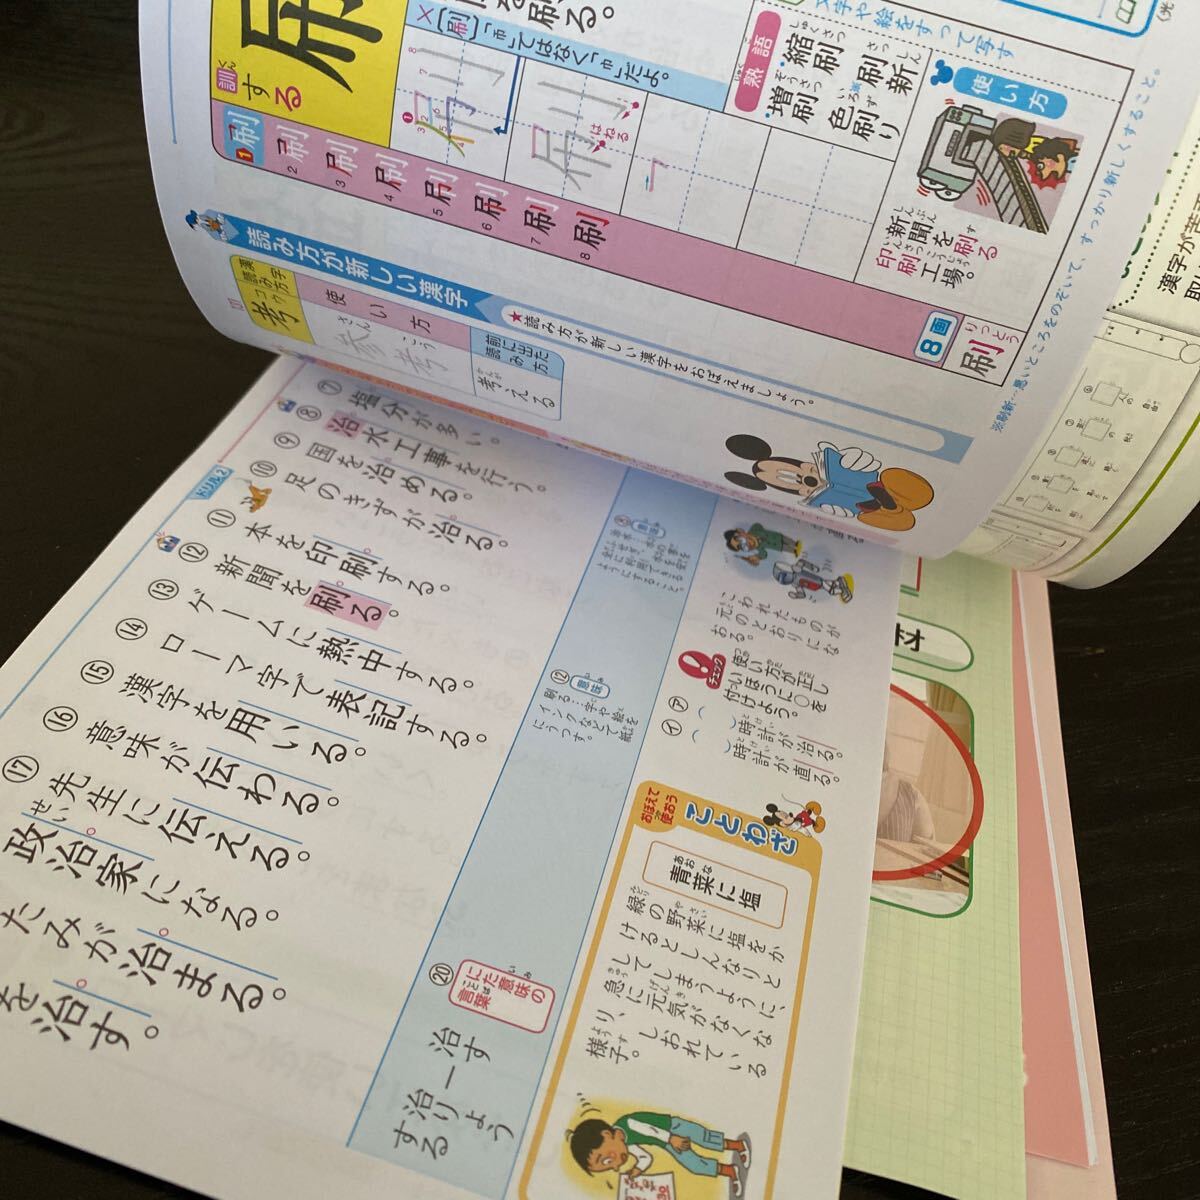 文字や絵をすって写す
訓 する
×〔刷〕「市」ではなく「巾」だよ。
はねる
熟語
縮刷
刷新
増刷
色刷り
使い方
新聞を刷る
印刷工場。
※刷新…悪いところをのぞいて、すっかり新しくすること。
刷 刷 刷 刷 刷 刷 刷 刷
1 2 3 4 5 6 7 8
8画
りっとう
刷
読み方が新しい漢字
★読み方が新しい漢字をおぼえましょう。
漢字
読み方
使い方
前に出た読み方
考
コウ
参考
さんこう
考える
かんが
⑦塩分が多い。
⑧治水工事を行う。
⑨国を治める。
⑩足のきずが治る。
ドリル2
⑪本を印刷する。
⑫新聞を刷る。
⑬ゲームに熱中する。
⑭ローマ字で表記する。
⑮漢字を用いる。
⑯意味が伝わる。
⑰先生に伝える。
政治家になる。
たみが治まる。
を治す。
⑫意味
刷る…字や絵を
インクなどで紙
にうつす。
⑳にた意味の言葉
治す―治りょうする
こわれたものが
元のとおりにな
おる。
チェック
使い方が正し
いほうに○を
付けよう。
ア( )時計が治る。
イ( )時計が直る。
おぼえて使おう
ことわざ
青菜に塩
緑の野菜に塩をか
けるとしんなりと
してしまうように、
急に元気がなくな
り、しおれている
様子。